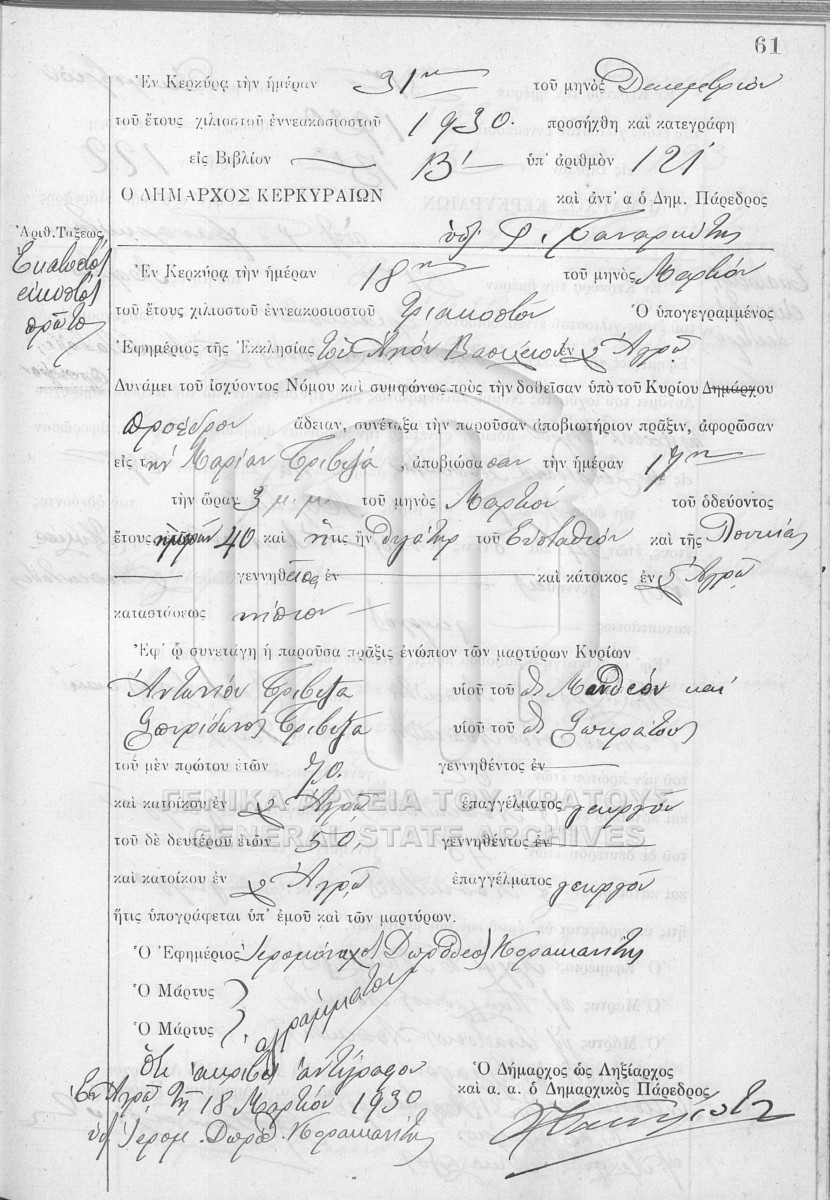 61
Ἐν Κερκύρᾳ τὴν ἡμέραν 31ην τοῦ μηνὸς Δεκεμβρίου
τοῦ ἔτους χιλιοστοῦ ἐννεακοσιοστοῦ 1930. προσήχθη καὶ κατεγράφη
εἰς Βιβλίον Β′ ὑπ' ἀριθμὸν 121
Ο ΔΗΜΑΡΧΟΣ ΚΕΡΚΥΡΑΙΩΝ καὶ ἀντ' α ὁ Δημ. Πάρεδρος
Ἀριθ. Τάξεως
Ἑκατοστὸς
εἰκοστὸς
πρῶτος
Ἐν Κερκύρᾳ τὴν ἡμέραν 18ην τοῦ μηνὸς Μαρτίου
τοῦ ἔτους χιλιοστοῦ ἐννεακοσιοστοῦ τριακοστοῦ Ὁ ὑπογεγραμμένος
Ἐφημέριος τῆς Ἐκκλησίας τοῦ Ἁγίου Βασιλείου ἐν Ἀγρῷ
Δυνάμει τοῦ ἰσχύοντος Νόμου καὶ συμφώνως πρὸς τὴν δοθεῖσαν ὑπὸ τοῦ Κυρίου Δημάρχου
Προέδρου ἄδειαν, συνέταξα τὴν παροῦσαν ἀποβιωτήριον πρᾶξιν, ἀφορῶσαν
εἰς τὴν Μαρίαν Τριβυζᾶ, ἀποβιώσασαν τὴν ἡμέραν 17ην
τὴν ὥραν 3 μ.μ. τοῦ μηνὸς Μαρτίου τοῦ ὁδεύοντος
ἔτους ἡμερῶν 40 καὶ ἥτις ἦν θυγάτηρ τοῦ Εὐσταθίου καὶ τῆς Λουκίας
γεννηθεῖσα ἐν καὶ κάτοικος ἐν Ἀγρῷ
καταστάσεως νήπιον
Ἐφ' ᾧ συνετάγη ἡ παροῦσα πρᾶξις ἐνώπιον τῶν μαρτύρων Κυρίων
Ἀντωνίου Τριβυζᾶ υἱοῦ τοῦ Ματθέου καὶ
Σπυρίδωνος Τριβυζᾶ υἱοῦ τοῦ Σωκράτους
τοῦ μὲν πρώτου ἐτῶν 70. γεννηθέντος ἐν
καὶ κατοίκου ἐν Ἀγρῷ ἐπαγγέλματος γεωργοῦ
ΓΕΝΙΚΑ ΑΡΧΕΙΑ ΤΟΥ ΚΡΑΤΟΥΣ
GENERAL STATE ARCHIVES
τοῦ δὲ δευτέρου ἐτῶν 50. γεννηθέντος ἐν
καὶ κατοίκου ἐν Ἀγρῷ ἐπαγγέλματος γεωργοῦ
ἥτις ὑπογράφεται ὑπ' ἐμοῦ καὶ τῶν μαρτύρων.
Ὁ Ἐφημέριος Ἱερομόναχος Δωρόθεος Κορακιανίτης
Ὁ Μάρτυς
Ὁ Μάρτυς ἀγράμματοι
Ὅτι ἀκριβὲς ἀντίγραφον
Ἐν Ἀγρῷ τῇ 18 Μαρτίου 1930
Ἱερομ. Δωρόθ. Κορακιανίτης
Ὁ Δήμαρχος ὡς Ληξίαρχος
καὶ α. α. ὁ Δημαρχικὸς Πάρεδρος